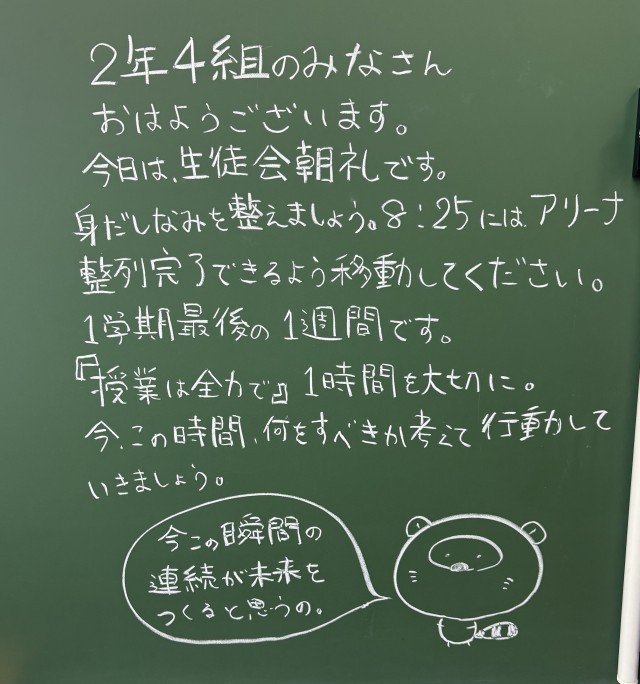 2年4組のみなさん
おはようございます。
今日は、生徒会朝礼です。
身だしなみを整えましょう。8:25には アリーナ
整列完了できるよう移動してください。
1学期最後の1週間です。
『授業は全力で』1時間を大切に。
今、この時間、何をすべきか考えて行動して
いきましょう。
今この瞬間の
連続が未来を
つくると思うの。